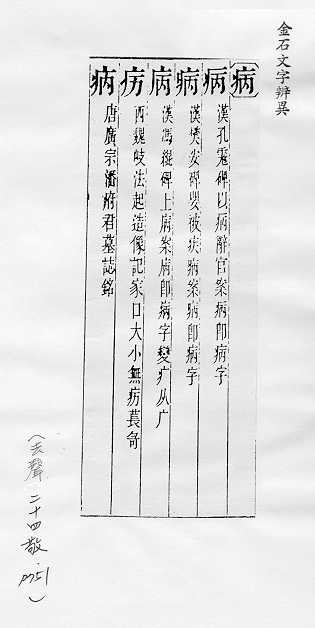 金石文字辨異
病
病 漢孔宙碑以病辭官案病即病字
病 漢樊安碑嬰被疾病案病即病字
病 漢馮緄碑上病案病即病字變疒从广
疠 西魏岐法起造像記家口大小無疠萇奇
病 唐廣宗潘府君墓誌銘
（去聲 二十四敬 P751）